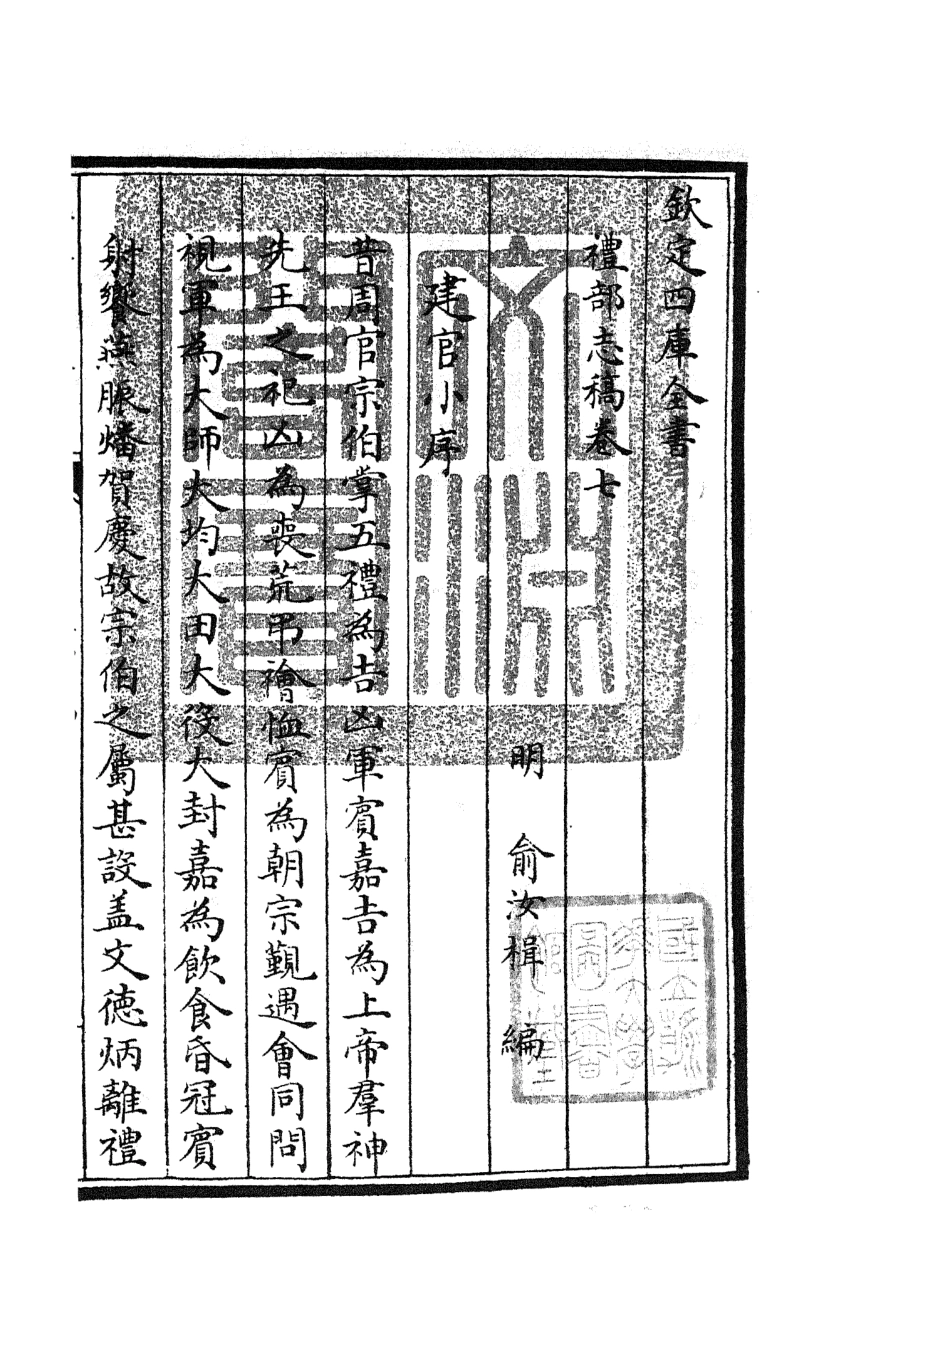 欽定四庫全書
禮部志稿卷七
明 俞汝楫 編
建官小序
昔周官宗伯掌五禮為吉凶軍賓嘉吉為上帝羣神
先王之祀凶為喪荒弔禬恤賓為朝宗覲遇會同問
視軍為大師大均大田大役大封嘉為飲食昏冠賓
射饗燕脤燔賀慶故宗伯之屬甚設盖文德炳離禮